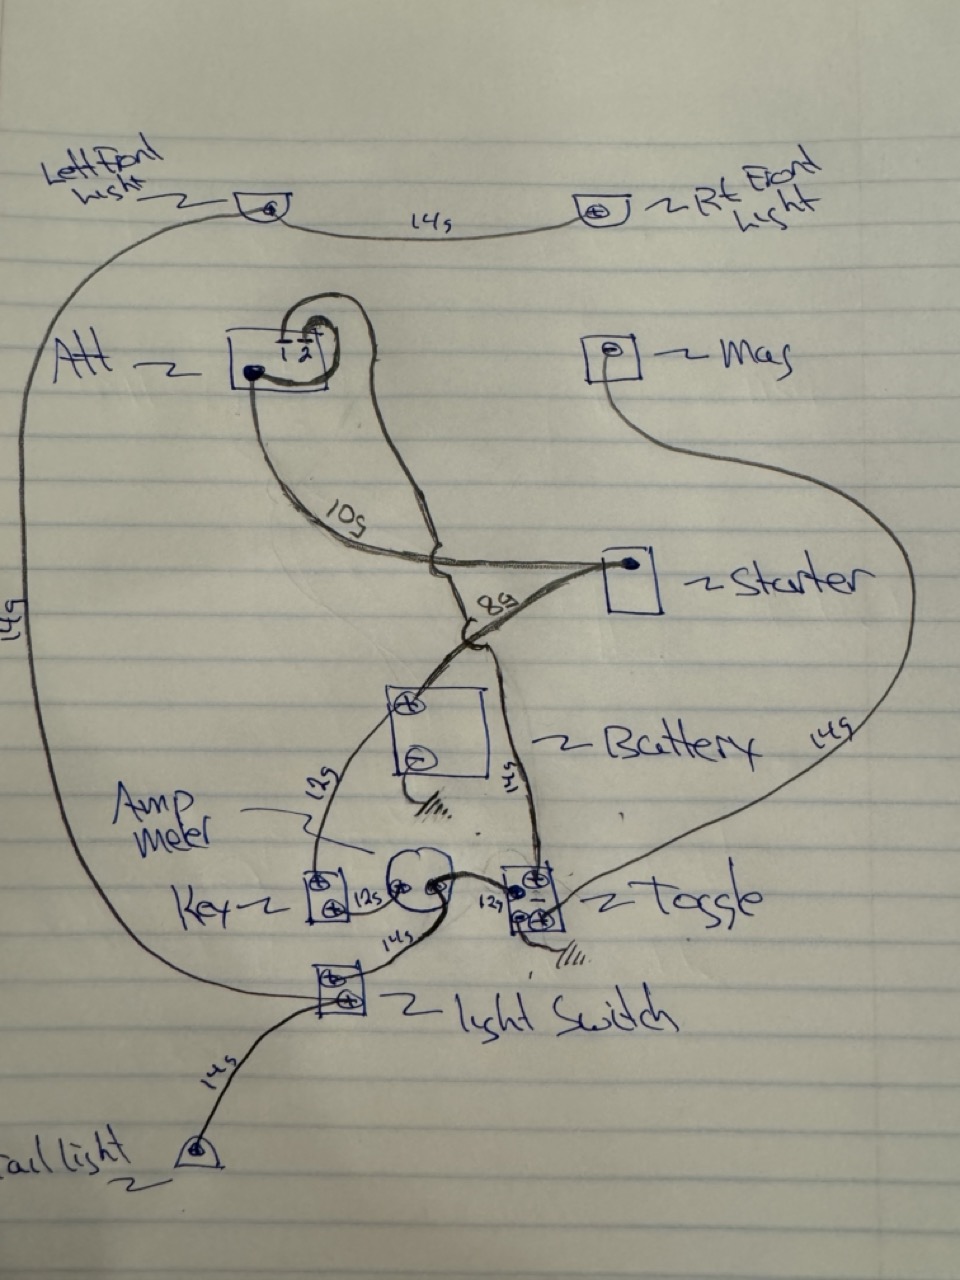 Left Front
Light
Rt Front
Light
14g
Alt
1 2
Mag
10g
Starter
8g
14g
Battery
14g
12g
14g
Amp
meter
Key
12g
12g
Toggle
14g
light Switch
14g
tail light